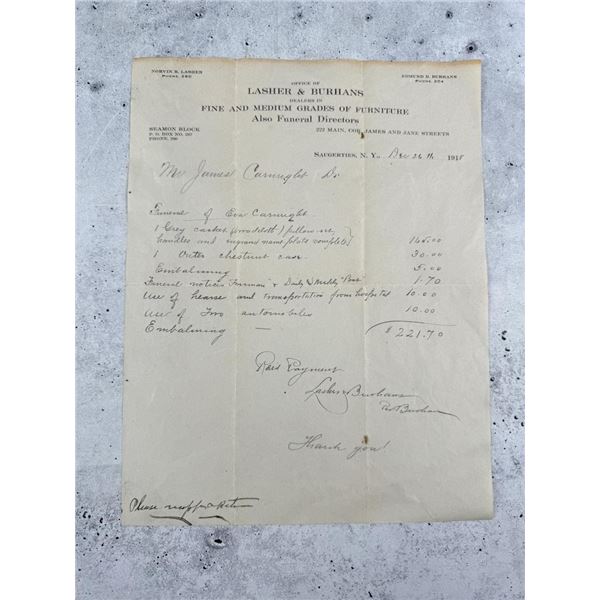 NORVIN R. LASHER
PHONE
EDMUND D. BURHANS
PHONE
OFFICE OF
LASHER & BURHANS
DEALERS IN
FINE AND MEDIUM GRADES OF FURNITURE
Also Funeral Directors
SEAMON BLOCK
P. O. BOX NO.
PHONE,
222 MAIN, COR. JAMES AND JANE STREETS
SAUGERTIES, N. Y., Dec 26 th 1918
Mr James Carnright Dr
Funeral of Eva Carnright
1 Grey casket (broadcloth) pillow set
handles and engraved name plate complete 165.00
1 Outer chestnut case 30.00
Embalming 5.00
Funeral notices Freeman & Daily & Weekly "Post" 1.70
Use of hearse and transportation from hospital 10.00
Use of Two automobiles 10.00
Embalming — $221.70
Recd Payment
Lasher & Burhans
Burhans
Thank you!
Please